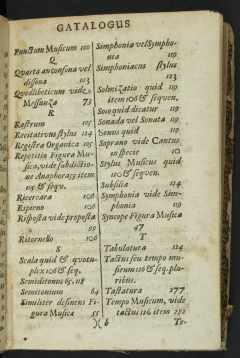 GATALOGUS
Punctum Musicum 100
Q
Quarta an consona vel
dissona 103
Quodlibeticum vide
Messanza 73
R
Rastrum 105
Recitativus stylus 124
Registra Organica 105
Repetitio Figura Mu-
sica, vide subdictio-
ne Anaphora 35 item
105 & sequ.
Ricercara 106
Ripieno 106
Risposta vide proposta
99
Ritornello 106
S
Scala quid & quotu-
plex 106 & seq.
Semiditonus 65. 118
Semitonium 64
Similiter desinens Fi-
gura Musica 55
Simphonia vel Sympho-
nia 119
Simphoniacus stylus
123
Solmizatio quid 119
item 106 & sequen.
Solo quid dicatur 119
Sonada vel Sonata 119
Sonus quid 119
Soprano vide Cantus
in specie 10
Stylus Musicus quid
120 & sequen.
Subsilia 124
Symphonia vide Sim-
phonia 119
Syncope Figura Musica
47
T
Tabulatura 124
Tactus seu tempo mu-
sicum 126 & seq. plu-
ribus.
Tastatura 277
Tempo Musicum, vide
tactus 126 item 282
)( 6 Te-